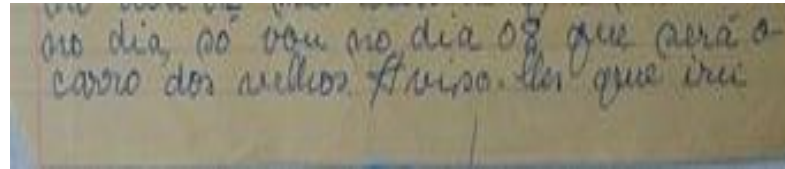 no dia, só vou no dia 08 que será o
carro dos velhos. Aviso-lhes que irei